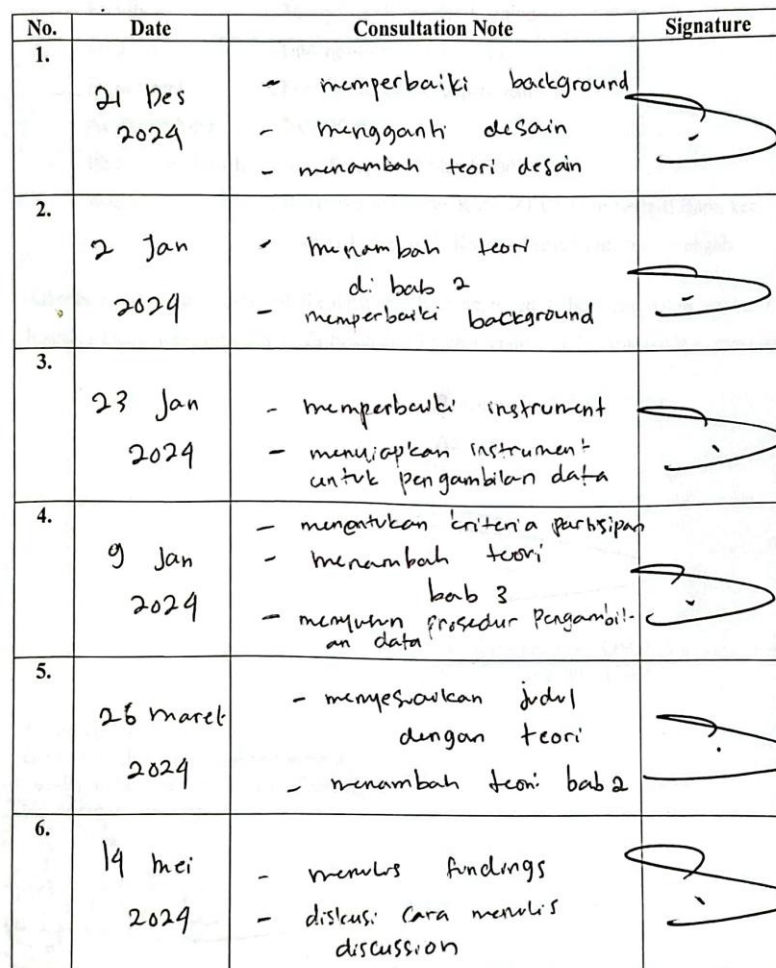 No. Date Consultation Note Signature
1.
21 Des
2024
- memperbaiki background
- mengganti desain
- menambah teori desain
2.
2 Jan
2024
- menambah teori
di bab 2
- memperbaiki background
3.
23 Jan
2024
- memperbaiki instrument
- menyiapkan instrument
untuk pengambilan data
4.
9 Jan
2024
- menentukan kriteria partisipan
- menambah teori
bab 3
- menyusun prosedur pengambil-
an data
5.
26 maret
2024
- menyesuaikan judul
dengan teori
- menambah teori bab 2
6.
14 mei
2024
- menulis fundings
- diskusi cara menulis
discussion